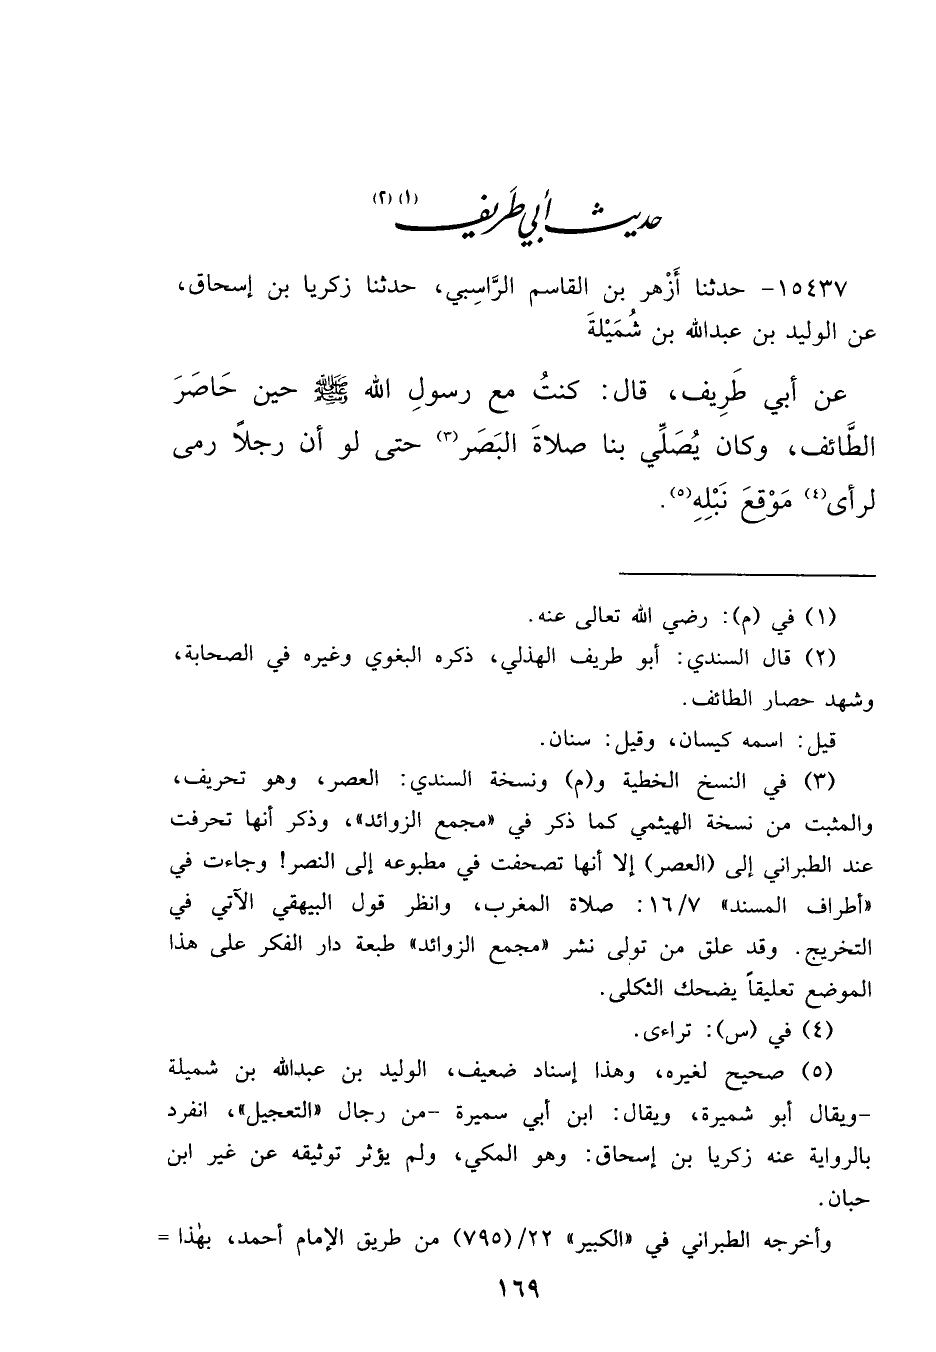 حديث أبي طَريف (١) (٢)
١٥٤٣٧- حدثنا أَزْهر بن القاسم الرَّاسِبي، حدثنا زكريا بن إسحاق،
عن الوليد بن عبدالله بن شُمَيْلةَ
عن أبي طَرِيف، قال: كنتُ مع رسولِ الله ﷺ حين حَاصَرَ
الطَّائف، وكان يُصَلِّي بنا صلاةَ البَصَر(٣) حتى لو أن رجلاً رمى
لرأى(٤) مَوْقعَ نَبْلِهِ(٥).
(١) في (م): رضي الله تعالى عنه.
(٢) قال السندي: أبو طريف الهذلي، ذكره البغوي وغيره في الصحابة،
وشهد حصار الطائف.
قيل: اسمه كيسان، وقيل: سنان.
(٣) في النسخ الخطية و(م) ونسخة السندي: العصر، وهو تحريف،
والمثبت من نسخة الهيثمي كما ذكر في «مجمع الزوائد»، وذكر أنها تحرفت
عند الطبراني إلى (العصر) إلا أنها تصحفت في مطبوعه إلى النصر! وجاءت في
«أطراف المسند» ١٦/٧: صلاة المغرب، وانظر قول البيهقي الآتي في
التخريج. وقد علق من تولى نشر «مجمع الزوائد» طبعة دار الفكر على هذا
الموضع تعليقاً يضحك الثكلى.
(٤) في (س): تراءى.
(٥) صحيح لغيره، وهذا إسناد ضعيف، الوليد بن عبدالله بن شميلة
-ويقال أبو شميرة، ويقال: ابن أبي سميرة -من رجال «التعجيل»، انفرد
بالرواية عنه زكريا بن إسحاق: وهو المكي، ولم يؤثر توثيقه عن غير ابن
حبان.
وأخرجه الطبراني في «الكبير» ٢٢/(٧٩٥) من طريق الإمام أحمد، بهٰذا =
١٦٩